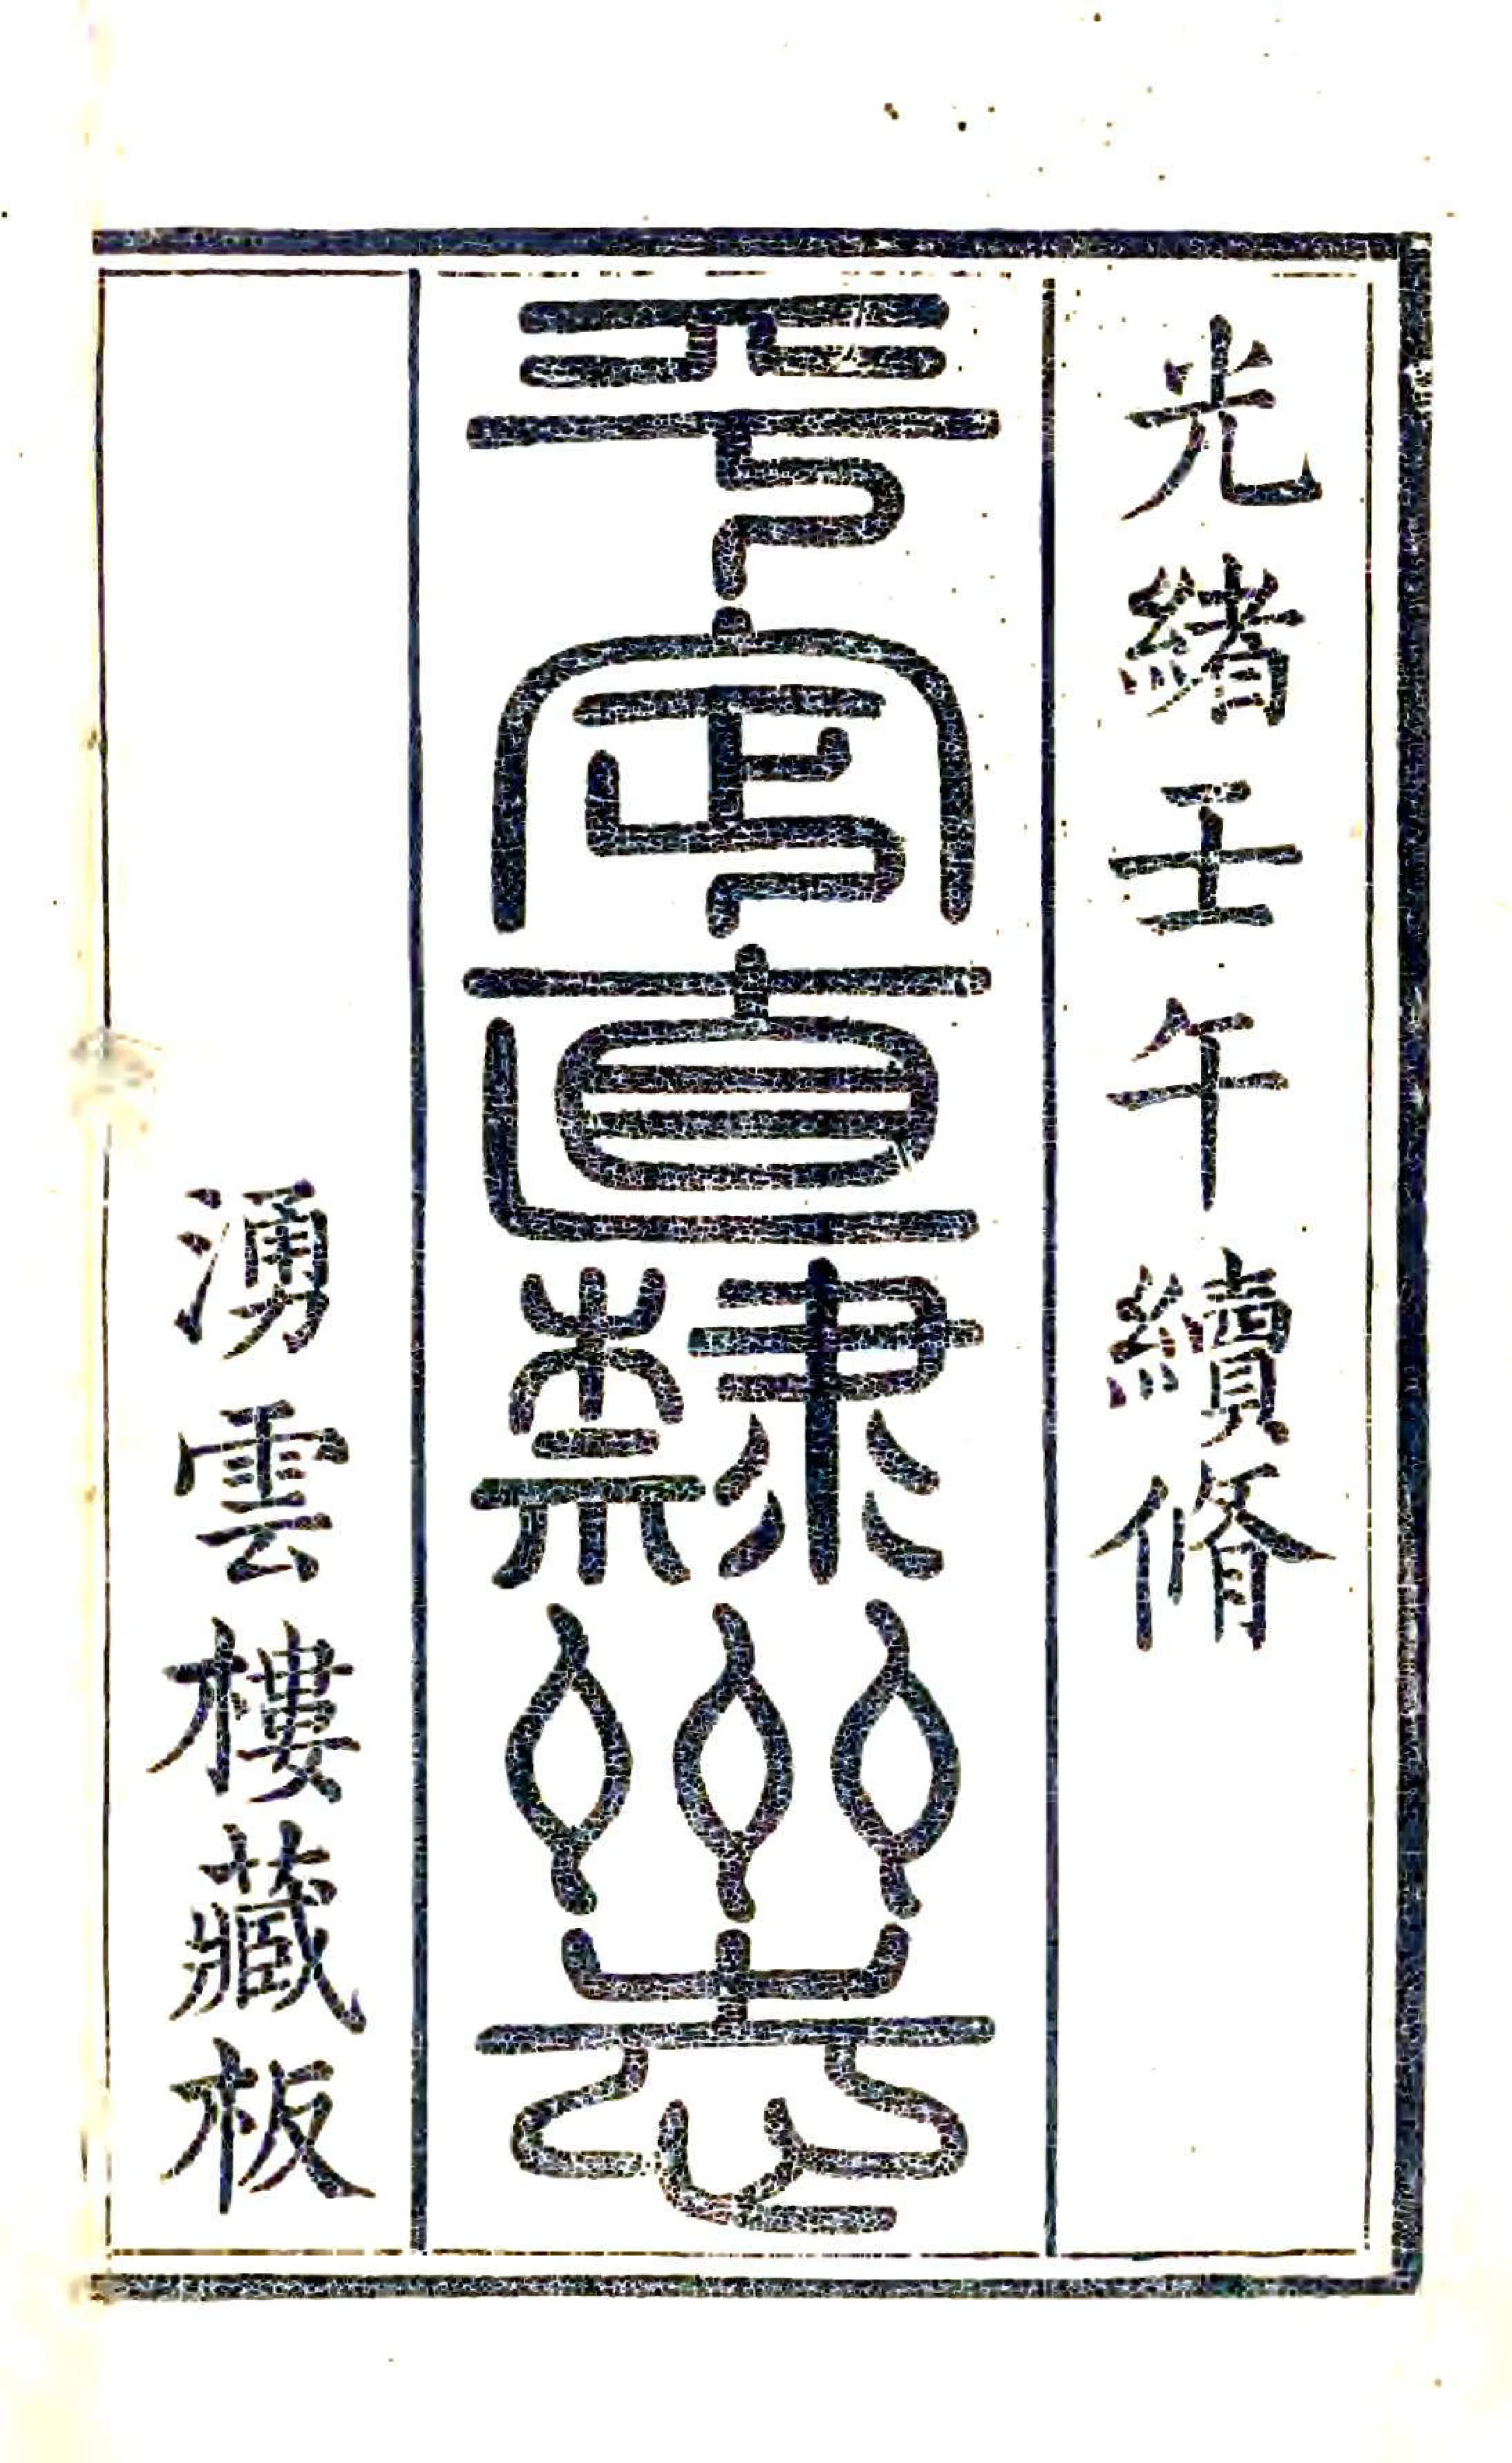 光緒壬午續脩
平定直隸州志
湧雲樓藏板